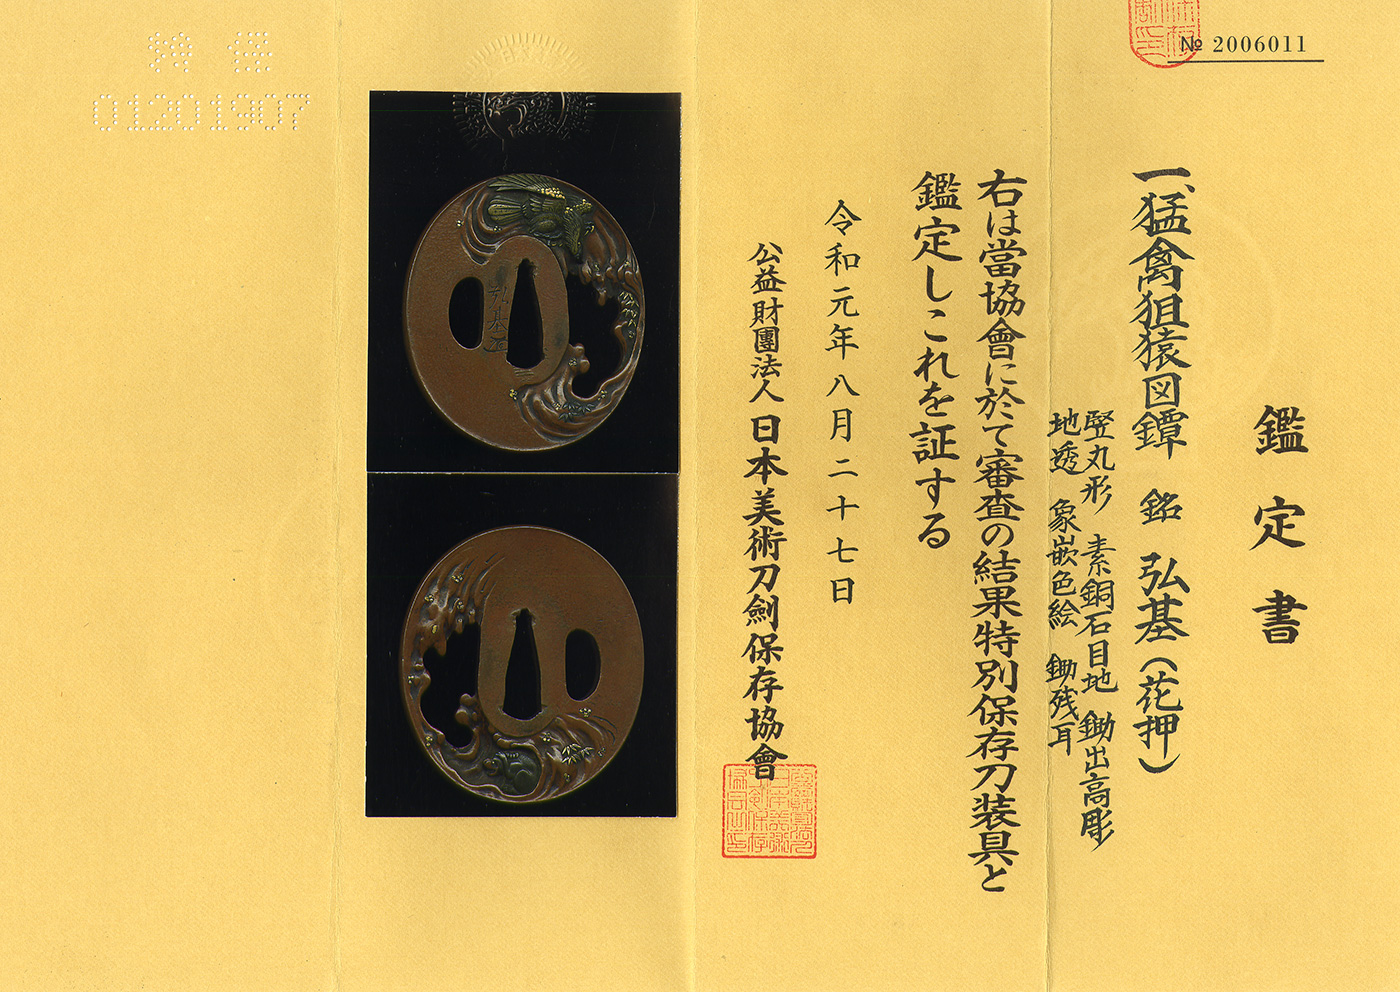 № 2006011
鑑定書
一、猛禽狙猿図鐔 銘 弘基(花押)
竪丸形 素銅石目地 鋤出高彫
地透 象嵌色絵 鋤残耳
右は當協會に於て審査の結果特別保存刀装具と
鑑定しこれを証する
令和元年八月二十七日
公益財團法人 日本美術刀劍保存協會
01201907